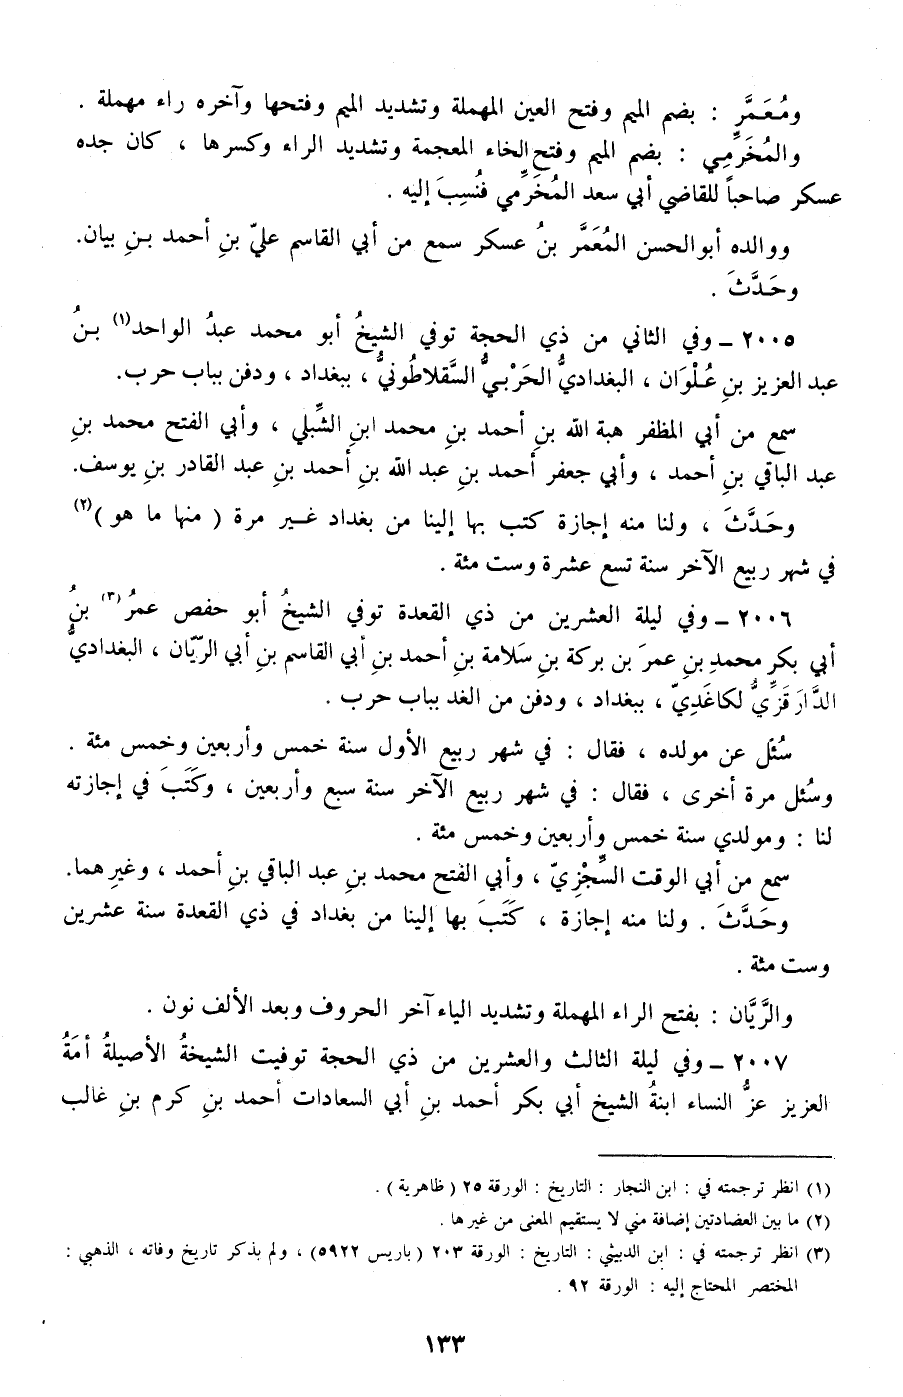 ومُعَمَّرٍ : بضم الميم وفتح العين المهملة وتشديد الميم وفتحها وآخره راء مهملة .
والمُخَرِّمِي : بضم الميم وفتح الخاء المعجمة وتشديد الراء وكسرها ، كان جده
عسكر صاحباً للقاضي أبي سعد المُخَرِّمي فنُسِبَ إليه .
ووالده أبو الحسن المُعَمَّر بنُ عسكر سمع من أبي القاسم عليّ بنِ أحمد بـنِ بيان.
وحَدَّثَ .
٢٠٠٥ ـ وفي الثاني من ذي الحجة توفي الشيخُ أبو محمد عبدُ الواحد(١) بـنُ
عبد العزيز بنِ عُـلْوَان ، البغداديُّ الحَرْبـيُّ السَّقلاطُونيُّ ، ببغداد ، ودفن بباب حرب.
سمع من أبي المظفر هبة الله بنِ أحمد بنِ محمد ابنِ الشِّبلي ، وأبي الفتح محمد بنِ
عبد الباقي بنِ أحمد ، وأبي جعفر أحمد بنِ عبد الله بنِ أحمد بنِ عبد القادر بنِ يوسف.
وحَـدَّثَ ، ولنا منه إجازة كتب بها إلينا من بغداد غـير مرة ( منها ما هو )(٢)
في شهر ربيع الآخر سنة تسع عشرة وست مئة .
٢٠٠٦ ـ وفي ليلة العشرين من ذي القعدة توفي الشيخُ أبو حفص عمرُ(٣) بنُ
أبي بكر محمدِ بنِ عمرَ بن بركة بنِ سَلامة بنِ أحمد بنِ أبي القاسم بنِ أبي الريّان ، البغداديُّ
الدَّارَقَزِّيُّ لكاغَدِيّ ، ببغداد ، ودفن من الغد بباب حرب .
سُئل عن مولده ، فقال : في شهر ربيع الأول سنة خمس وأربعين وخمس مئة .
وسُئل مرة أخرى ، فقال : في شهر ربيع الآخر سنة سبع وأربعين ، وكَتَبَ في إجازته
لنا : ومولدي سنة خمس وأربعين وخمس مئة .
سمع من أبي الوقت السِّجْزِيّ ، وأبي الفتح محمد بنِ عبد الباقي بنِ أحمد ، وغيرِهما.
وحَـدَّثَ . ولنا منه إجازة ، كَتَبَ بها إلينا من بغداد في ذي القعدة سنة عشرين
وست مئة .
والرَّيَّان : بفتح الراء المهملة وتشديد الياء آخر الحروف وبعد الألف نون .
٢٠٠٧ ـ وفي ليلة الثالث والعشرين من ذي الحجة توفيت الشيخةُ الأصيلةُ أمَةُ
العزيز عزُّ النساء ابنةُ الشيخ أبي بكر أحمد بنِ أبي السعادات أحمد بنِ كرم بنِ غالب
(١) انظر ترجمته في : ابن النجار : التاريخ : الورقة ٢٥ ( ظاهرية ) .
(٢) ما بين العضادتين إضافة مني لا يستقيم المعنى من غيرها .
(٣) انظر ترجمته في : ابن الدبيثي : التاريخ : الورقة ٢٠٣ ( باريس ٥٩٢٢ ) ، ولم يذكر تاريخ وفاته ، الذهبي :
المختصر المحتاج إليه : الورقة ٩٢ .
١٣٣